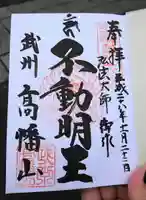 奉拝
平成二十八年七月二十二日
弘法大師御作
不動明王
武州
高幡山